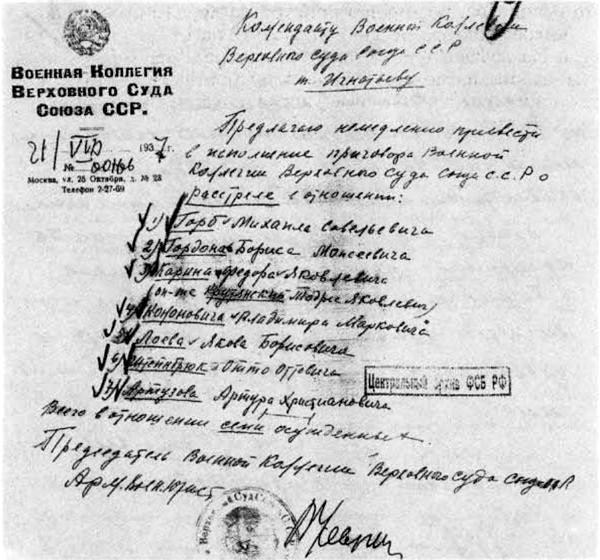 Военная Коллегия
Верховного Суда
Союза ССР.
21/VIII 1937 г.
№ 00166
Москва, ул. 25 Октября, д. № 23
Телефон 2-27-69
Коменданту Военной Коллегии
Верховного Суда Союза ССР
т. Игнатьеву
Предлагаю немедленно привести
в исполнение приговора Военной
Коллегии Верховного Суда Союза ССР о
расстреле в отношении:
1) Горб Михаила Савельевича
2) Гордона Бориса Моисеевича
3) Карина Федора Яковлевича
(он-же Крутянский Тодрес Яковлевич)
4) Кононовича Владимира Марковича
5) Лоева Якова Борисовича
6) Штейнбрюк Отто Оттовича
7) Артузова Артура Христиановича
Всего в отношении семи осужденных.
Председатель Военной Коллегии Верховного суда Союза ССР
Армвоенюрист
Центральный архив ФСБ РФ